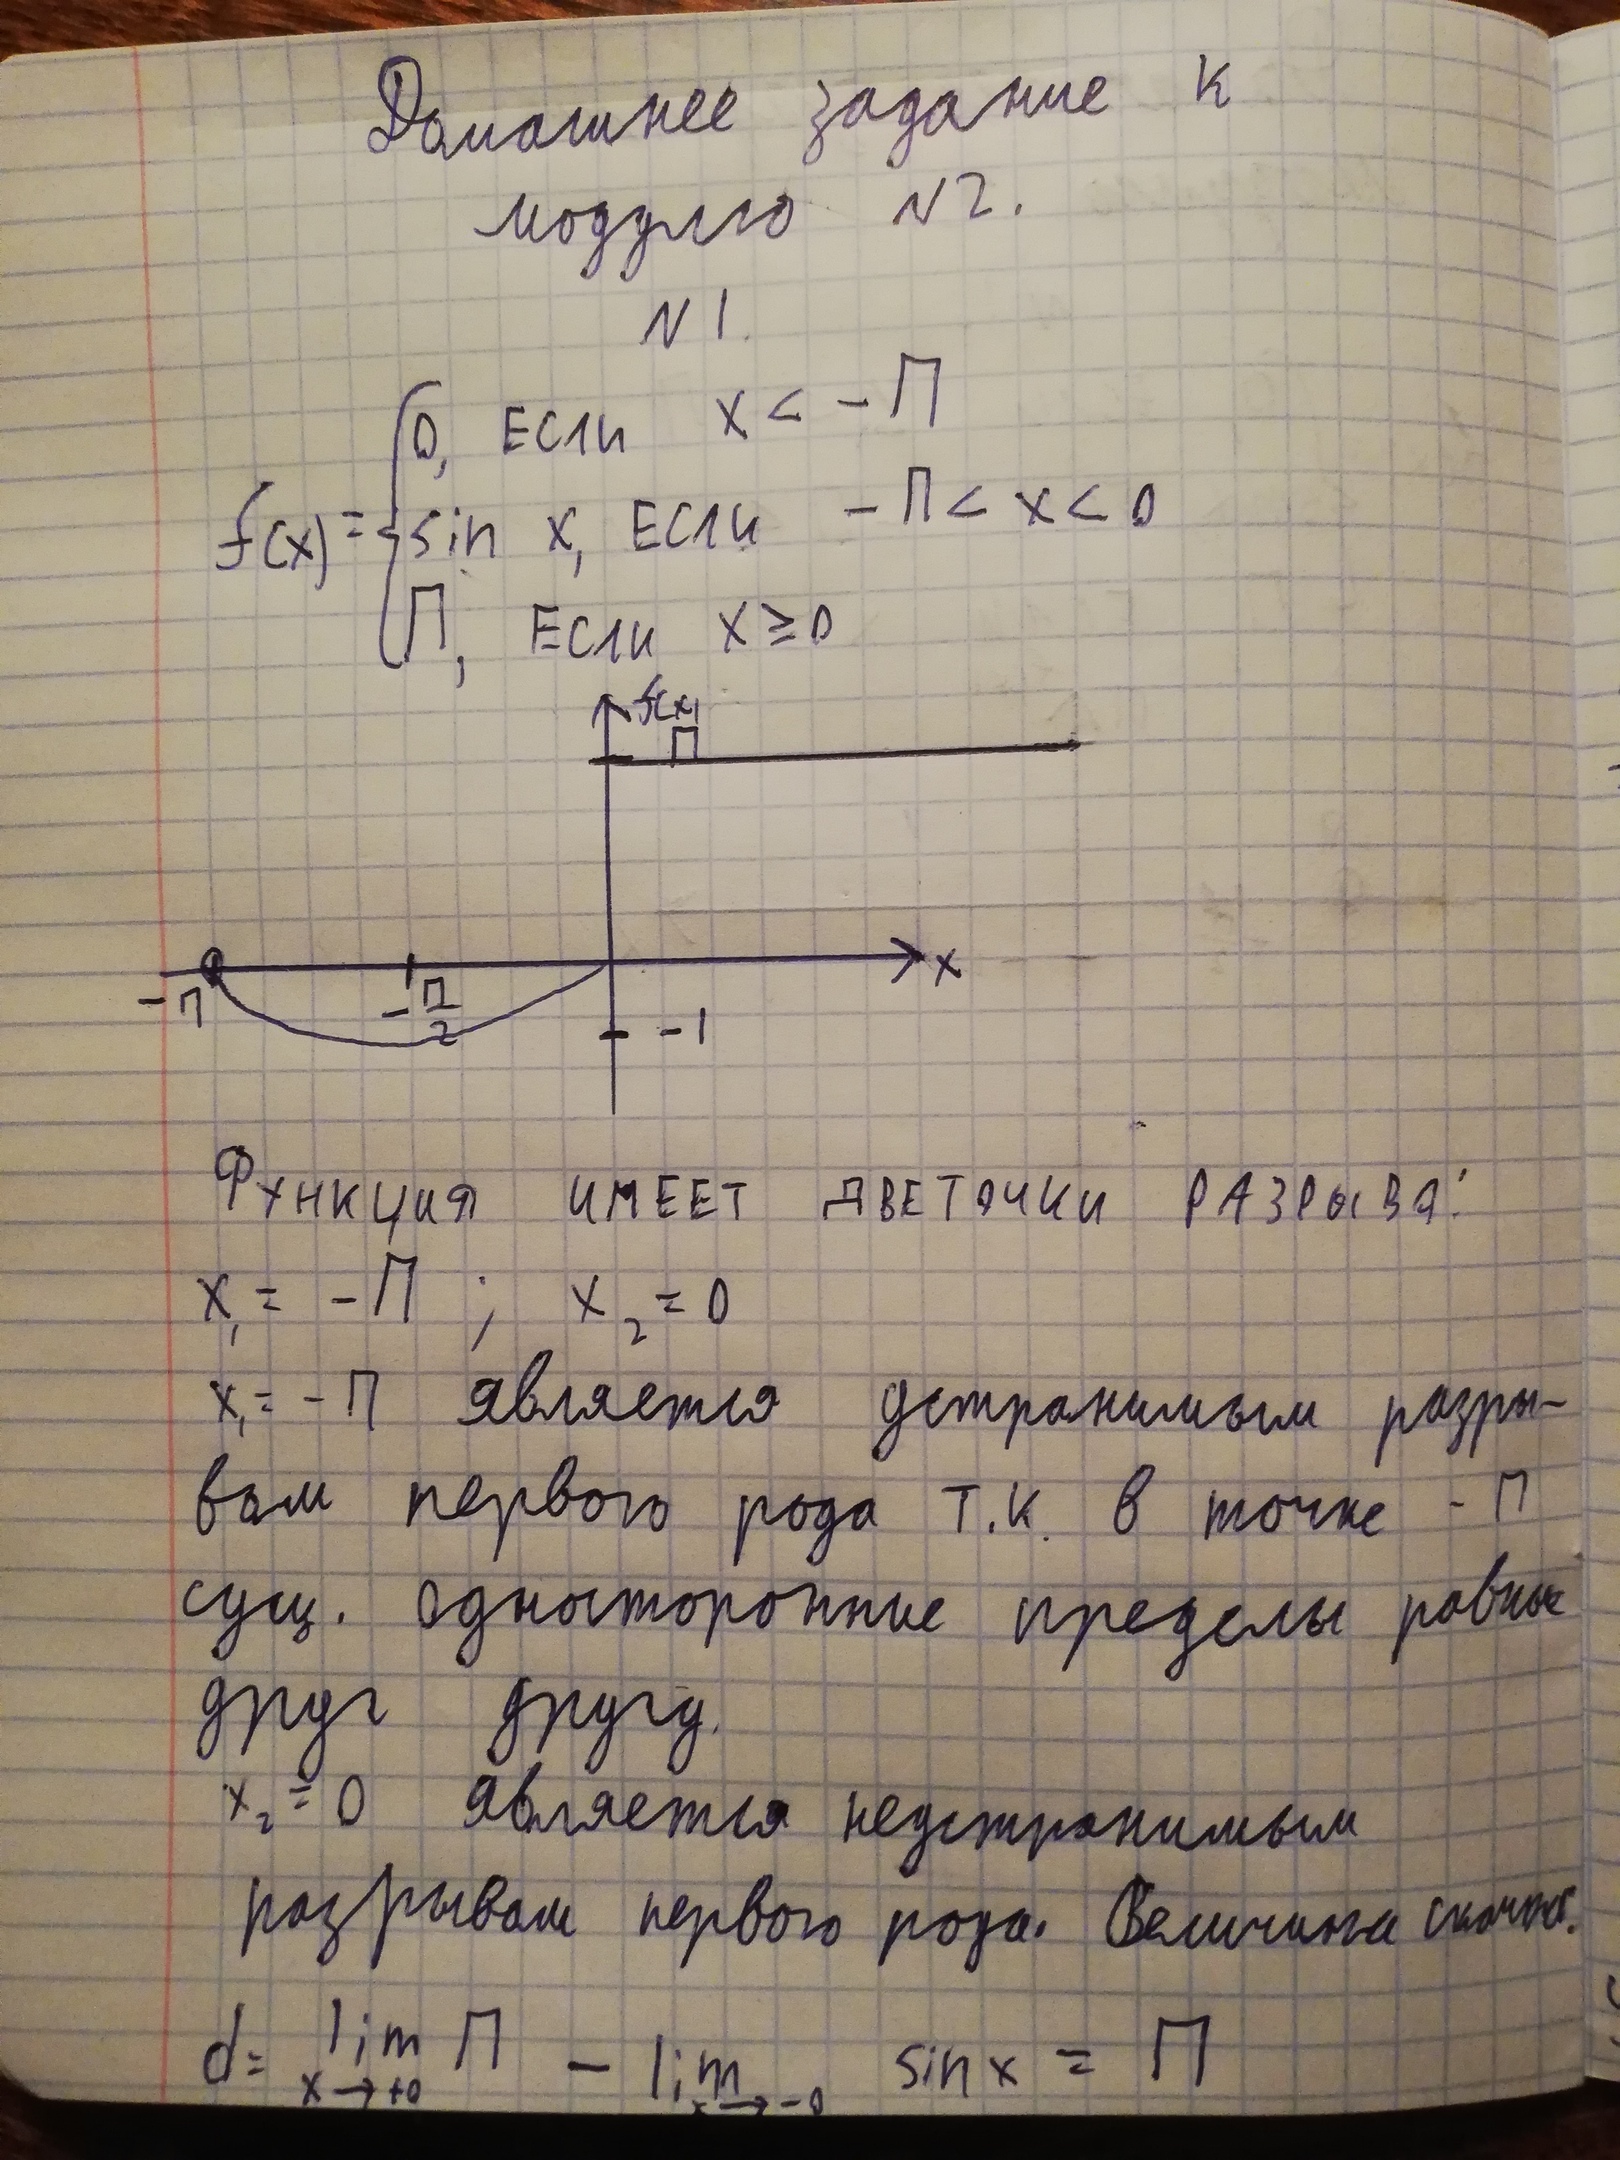 Домашнее задание к
модулю N2.
N1.
0, ЕСЛИ x < -П
f(x)= sin x, ЕСЛИ -П < x < 0
П, ЕСЛИ x ≥ 0
f(x)
П
x
-П
-П/2
-1
ФУНКЦИЯ ИМЕЕТ ДВЕ ТОЧКИ РАЗРЫВА:
x₁ = -П ; x₂ = 0
x₁ = -П является устранимым разры-
вом первого рода т.к. в точке -П
сущ. односторонние пределы равные
друг другу.
x₂ = 0 является неустранимым
разрывом первого рода. Величина скачка.
d= lim П - lim sin x = П
x→+0 x→-0